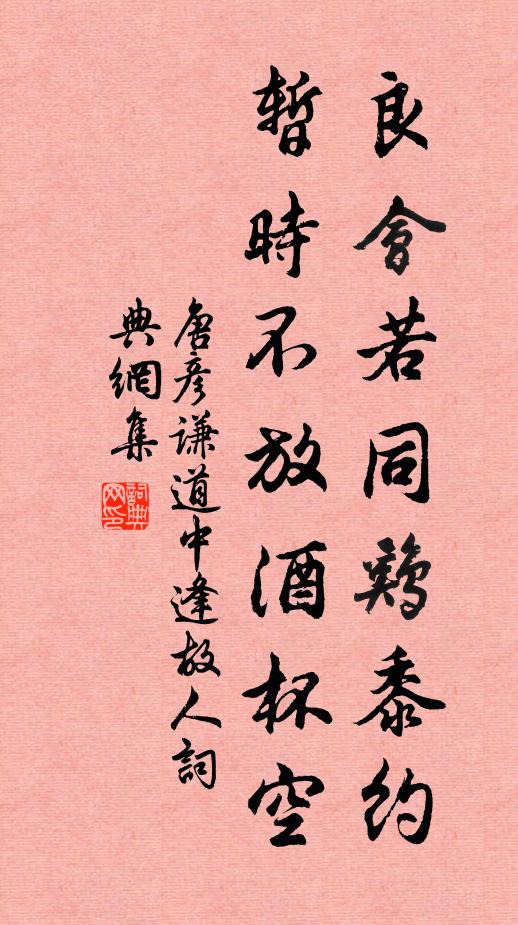 良會若同鷄黍約
暫時不放酒杯空
唐彥謙道中逢故人詞
典網集
詞典网印